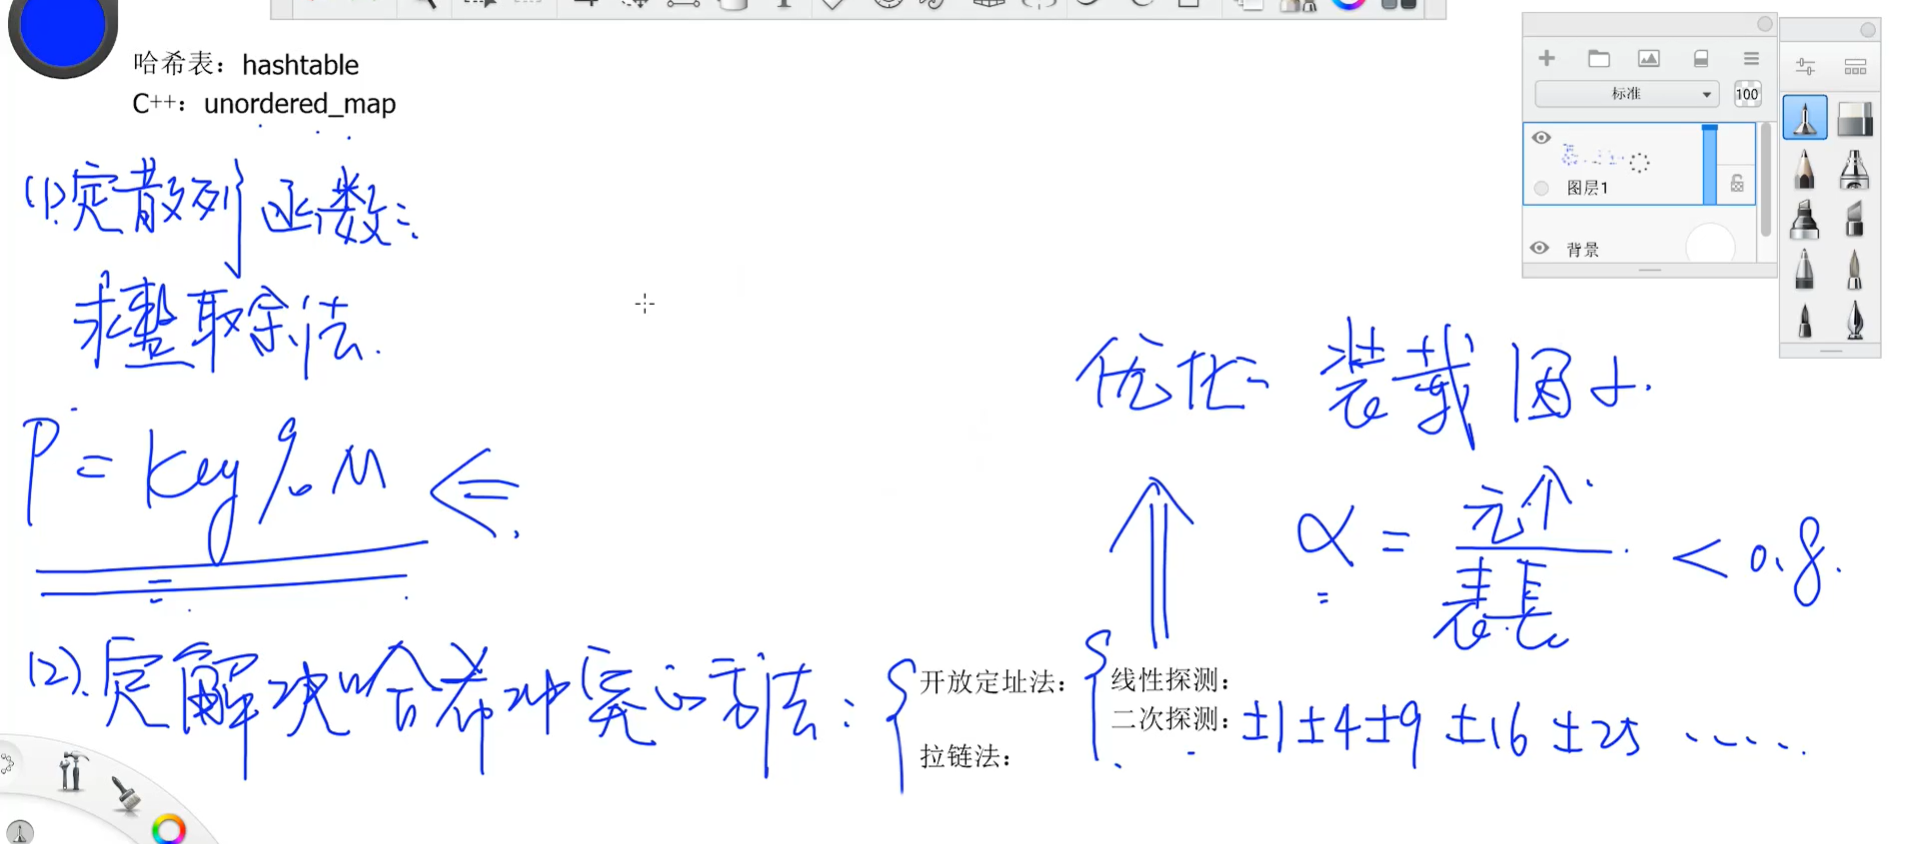 哈希表：hashtable
C++：unordered_map
(1).定散列函数：
求整取余法.
P = key % M
(2).定解决哈希冲突的方法：
开放定址法：
拉链法：
线性探测：
二次探测：±1 ±4 ±9 ±16 ±25 ......
优化：装载因子.
α = 元个 / 表长 < 0.8.
标准
100
图层1
背景